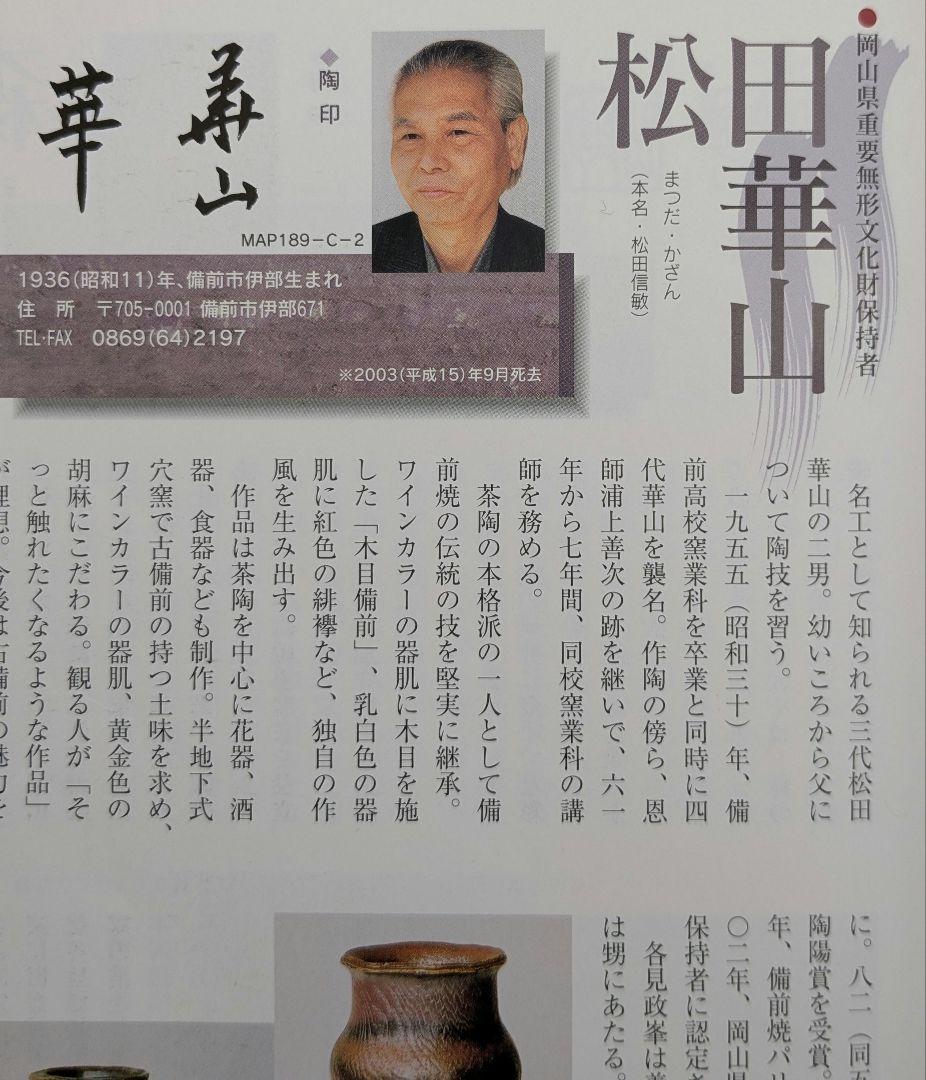 ●岡山県重要無形文化財保持者
松田華山
まつだ・かざん
（本名・松田信敏）
◆陶印
華山
華
MAP189−C−2
1936(昭和11)年、備前市伊部生まれ
住　所　〒705−0001 備前市伊部671
TEL·FAX　0869(64)2197
※2003(平成15)年9月死去
名工として知られる三代松田
華山の二男。幼いころから父に
ついて陶技を習う。
一九五五（昭和三十）年、備
前高校窯業科を卒業と同時に四
代華山を襲名。作陶の傍ら、恩
師浦上善次の跡を継いで、六一
年から七年間、同校窯業科の講
師を務める。
茶陶の本格派の一人として備
前焼の伝統の技を堅実に継承。
ワインカラーの器肌に木目を施
した「木目備前」、乳白色の器
肌に紅色の緋襷など、独自の作
風を生み出す。
作品は茶陶を中心に花器、酒
器、食器なども制作。半地下式
穴窯で古備前の持つ土味を求め、
ワインカラーの器肌、黄金色の
胡麻にこだわる。観る人が「そ
っと触れたくなるような作品」
が理想。今後は古備前の魅力を
に。八二（同五
陶陽賞を受賞。
年、備前焼パリ
〇二年、岡山県
保持者に認定さ
各見政峯は義
は甥にあたる。